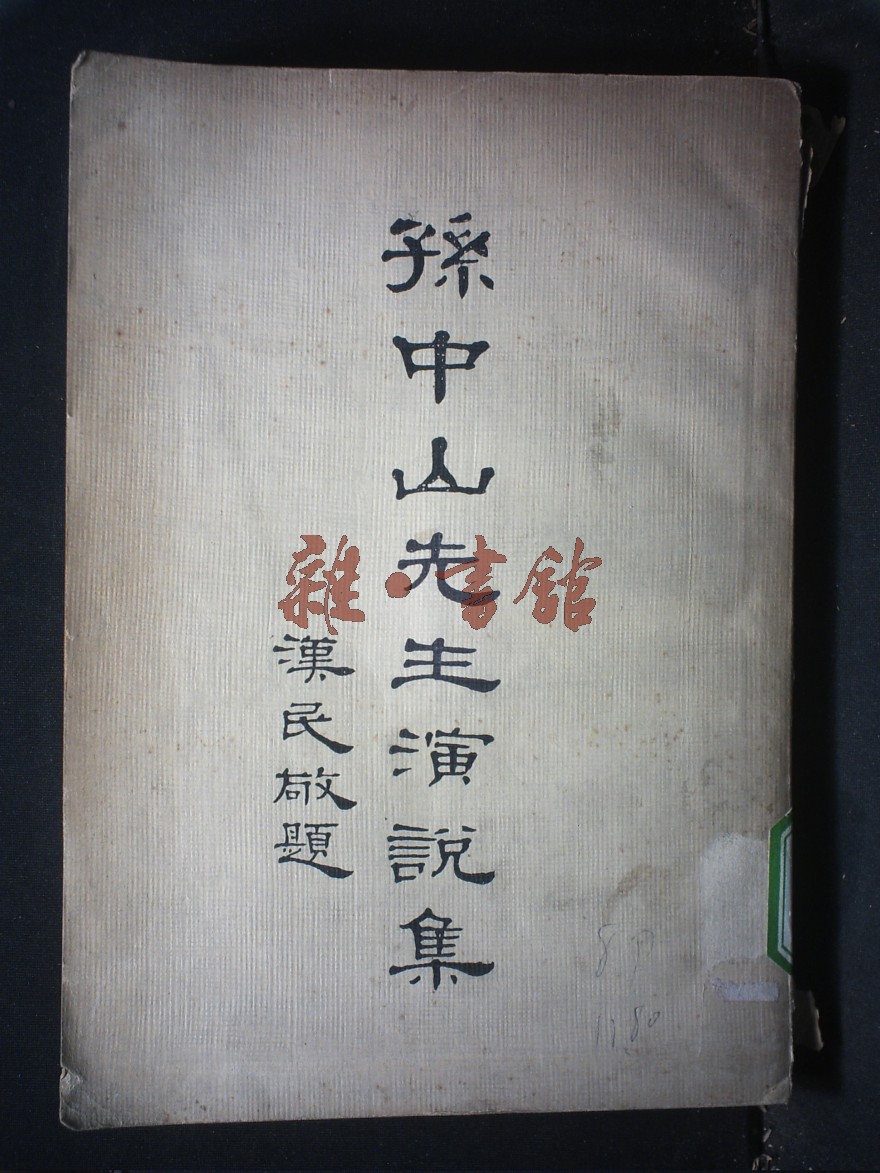 孫中山先生演說集
漢民敬題
雜·書館